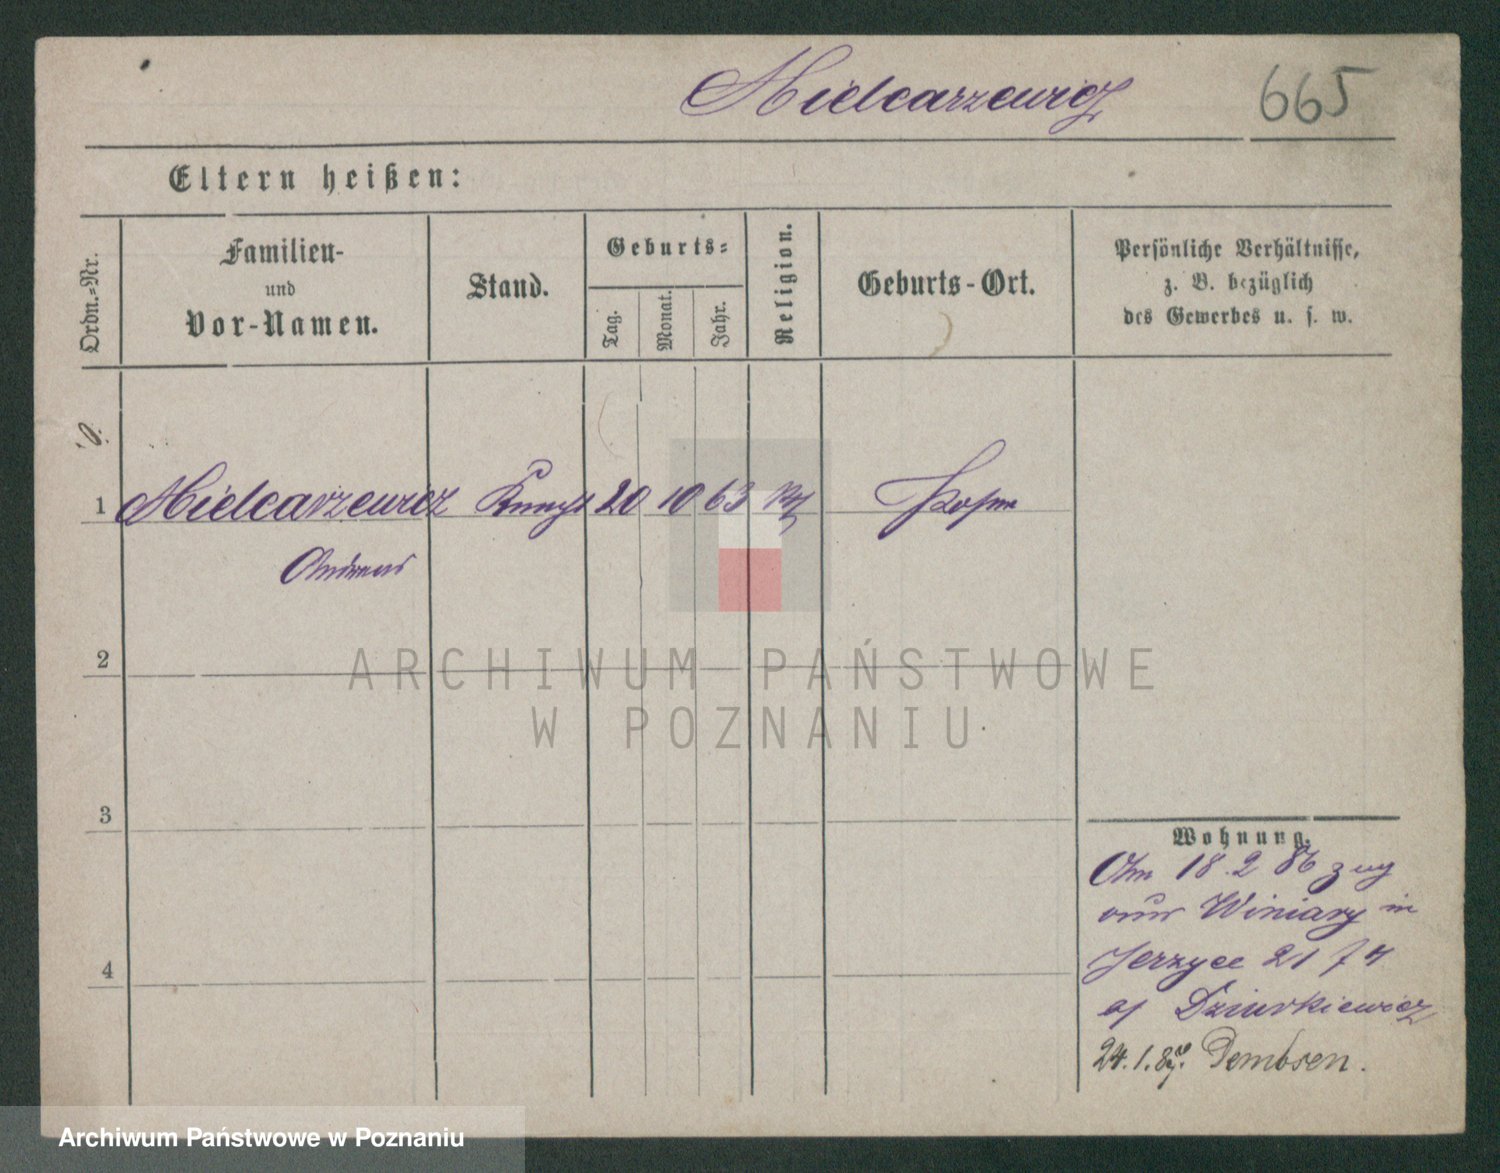 Mielcarzewicz 665
Eltern heißen:
Ordn.=Nr.
Familien-
und
Vor-Namen.
Stand.
Geburts=
Tag.
Monat.
Jahr.
Religion.
Geburts-Ort.
Persönliche Verhältnisse,
z. B. bezüglich
des Gewerbes u. s. w.
1 Mielcarzewicz Knecht 20 10 63 Posen
Andreas
2
3
4
ARCHIWUM PAŃSTWOWE
W POZNANIU
Wohnung.
Am 18.2 86 zug
von Winiary in
Jerzyce 21
Dziurkiewicz
24.1.87. Dembsen.
Archiwum Państwowe w Poznaniu